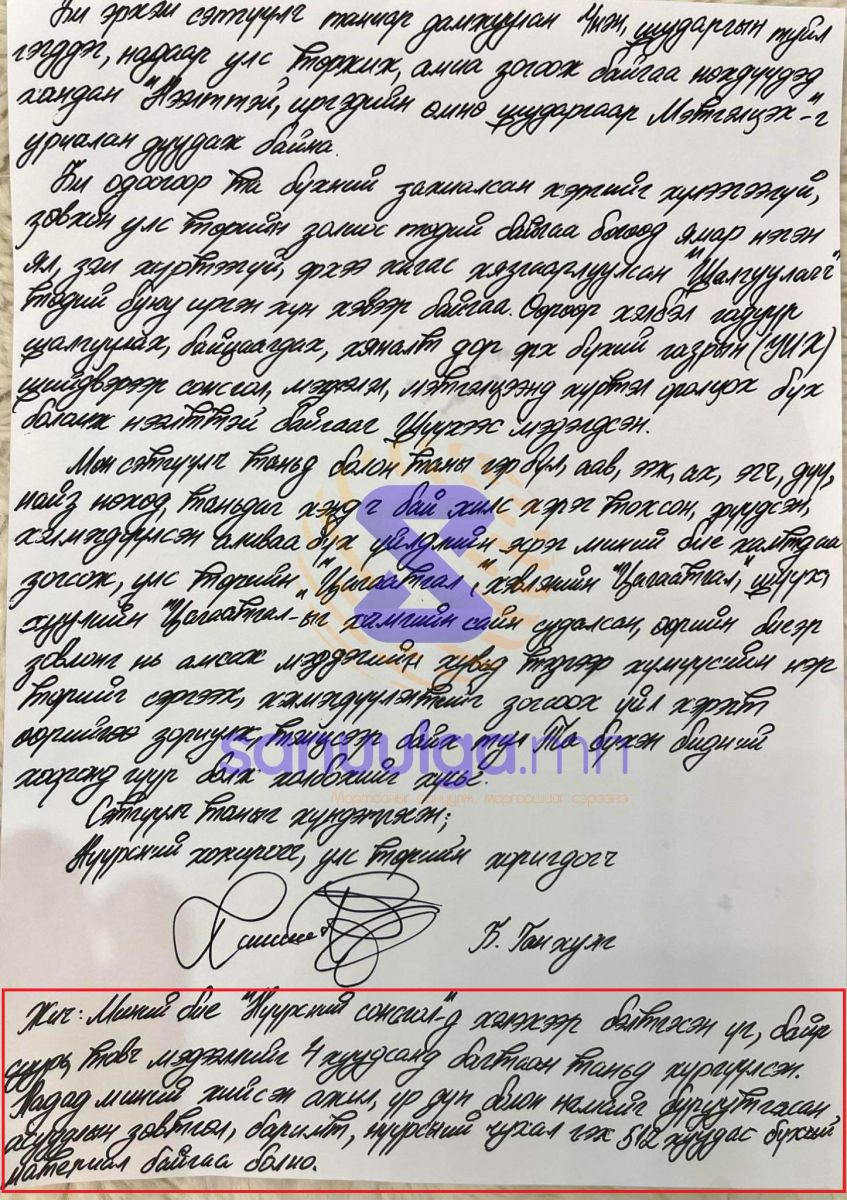 Би эрхэм сэтгүүлч таниар дамжуулан Үнэн, шударгын туйл
гэгддэг, надаар улс төржих, амиа зогоож байгаа нөхдүүдэд
хандан "Нээлттэй, иргэдийн өмнө шударгаар Мэтгэлцэх"-г
уриалан дуудаж байна.
Би одоогоор та бүхний захиалсан хэргийг хүлээгээгүй,
зөвхөн улс төрийн золиос төдий байгаа бөгөөд ямар нэгэн
ял, зэм хүртээгүй, эрхээ хагас хязгаарлуулсан "Шалгуулагч"
төдий буюу иргэн хүн хэвээр байгаа. Өөрөөр хэлбэл гадуур
шалгуулах, байцаагдах, хяналт дор эрх бүхий газрын (УИХ)
шийдвэрээр сонсгол, мэдээлэл, мэтгэлцээнд хүртэл оролцох бүх
боломж нээлттэй байгааг Шүүхээс мэдэгдсэн.
Мөн сэтгүүлч танд болон таны гэр бүл, аав, ээж, ах, эгч, дүү,
найз нөхөд, таньдаг хэнд ч бай хилс хэрэг тохсон, хүүдсэн,
хэлмэгдүүлсэн аливаа бүх үйлдлийн эсрэг миний бие хамтдаа
зогсож, улс төрийн "Цагаатгал", хэвлэлийн "Цагаатгал", шүүх,
хуулийн "Цагаатгал-ыг хамгийн сайн судалсан, өөрийн биеэр
зовлонг нь амсаж мэдсэнийн хувьд тэдгээр хүмүүсийн нэр
төрийг сэргээх, хэлмэгдүүлэлтийг зогсоох үйл хэрэгт
өөрийгөө зориулж, тэмцээр байх тул Та бүхэн бидний
хооронд гүүр болж холбохыг хүсье.
Сэтгүүлч таныг хүндэтгэсэн;
Нүүрсний хохирогч, улс төрийн хоригдогч
Б. Ганхуяг
sanuulga.mn
Мартсаныг сануулж, маргаашийг сэрээнэ
Жич: Миний бие "Нүүрсний сонсгол"-д хэлэхээр бэлтгэсэн үг, байр
суурь, товч мэдээллийг 4 хуудсанд багтаан танд хүргүүлсэн.
Надад миний хийсэн ажил, үр дүн болон намайг буруутгасан
асуудлын зөвтгөл, баримт, нүүрсний чухал гэх 512 хуудас бүхий
материал байгаа болно.